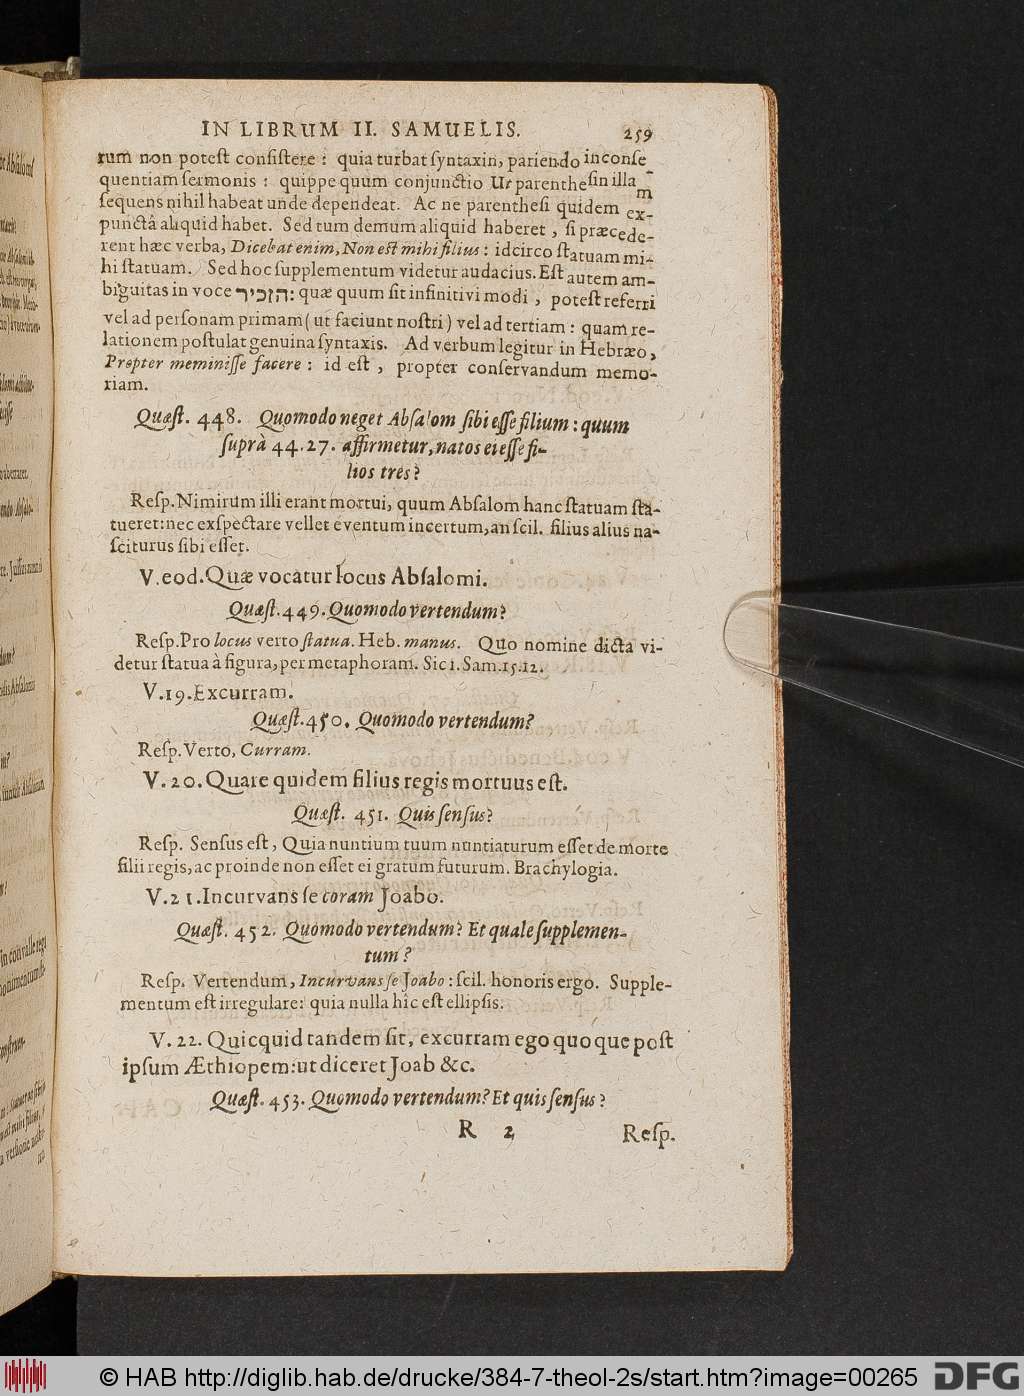 IN LIBRUM II. SAMUELIS. 259
rum non potest consistere: quia turbat syntaxin, pariendo inconse-
quentiam sermonis: quippe quum conjunctio Ut parenthesin illam
sequens nihil habeat unde dependeat. Ac ne parenthesi quidem ex-
punctâ aliquid habet. Sed tum demum aliquid haberet, si præcede-
rent hæc verba, Dicebat enim, Non est mihi filius: idcirco statuam mi-
hi statuam. Sed hoc supplementum videtur audacius. Est autem am-
biguitas in voce הזכיר: quæ quum sit infinitivi modi, potest referri
vel ad personam primam (ut faciunt nostri) vel ad tertiam: quam re-
lationem postulat genuina syntaxis. Ad verbum legitur in Hebræo,
Propter meminisse facere: id est, propter conservandum memo-
riam.
Quæst. 448. Quomodo neget Absalom sibi esse filium: quum
suprà 44.27. affirmetur, natos ei esse fi-
lios tres?
Resp. Nimirum illi erant mortui, quum Absalom hanc statuam sta-
tueret: nec exspectare vellet eventum incertum, an scil. filius alius na-
sciturus sibi esset.
V. eod. Quæ vocatur locus Absalomi.
Quæst. 449. Quomodo vertendum?
Resp. Pro locus verto statua. Heb. manus. Quo nomine dicta vi-
detur statua à figura, per metaphoram. Sic 1. Sam. 15. 12.
V. 19. Excurram.
Quæst. 450. Quomodo vertendum?
Resp. Verto, Curram.
V. 20. Quare quidem filius regis mortuus est.
Quæst. 451. Quis sensus?
Resp. Sensus est, Quia nuntium tuum nuntiaturum esset de morte
filii regis, ac proinde non esset ei gratum futurum. Brachylogia.
V. 21. Incurvans se coram Joabo.
Quæst. 452. Quomodo vertendum? Et quale supplemen-
tum?
Resp. Vertendum, Incurvans se Joabo: scil. honoris ergo. Supple-
mentum est irregulare: quia nulla hîc est ellipsis.
V. 22. Quicquid tandem sit, excurram ego quoque post
ipsum Æthiopem: ut diceret Joab &c.
Quæst. 453. Quomodo vertendum? Et quis sensus?
R 2 Resp.
© HAB http://diglib.hab.de/drucke/384-7-theol-2s/start.htm?image=00265 DFG